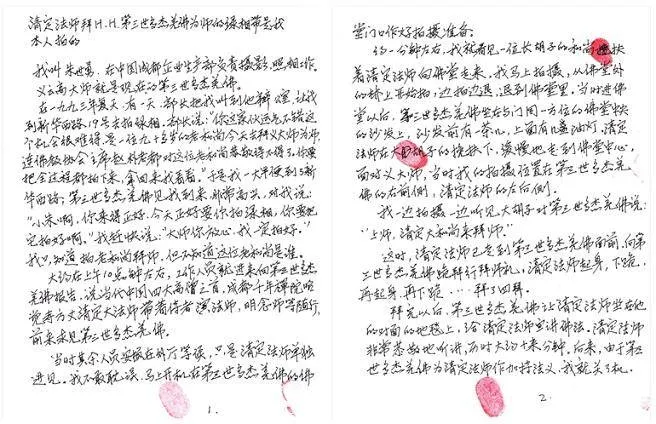 清定法师拜H.H.第三世多杰羌佛为师的录相带是我
本人拍的
我叫朱世勇,在中国成都企业生产部负责摄影、照相工作。
义云高大师就是现在的第三世多杰羌佛。
在一九九三年夏天,有一天,部长把我叫到他办公室,让我
到新华西路19号去拍录相,部长说:“你这家伙运气不错这
个机会很难得,是一位九十五岁的老和尚今天去拜义大师为师,
连佛教协会主席赵朴老都对这位老和尚恭敬得不得了,你要
把全过程都拍下来,拿回来我看看。”于是我一大早便到新
华西路,第三世多杰羌佛见我到来,非常高兴,对我说:
“小朱啊,你来得正好,今天正好要你拍录相,你要把
它拍好啊。”我赶快说:“大师你放心,我一定拍好。”
我只知道拍老和尚拜师,但不知道这位老和尚是谁。
大约在上午10点钟左右,工作人员就进来向第三世多杰
羌佛报告,说当代中国四大高僧之首,成都千年禅院昭
觉寺方丈清定大法师带着侍者演法师,明念师等随行,
前来求见第三世多杰羌佛。
当时其余人员安排在外厅等候,只是清定法师单独
进见。我不敢耽误,马上开机在第三世多杰羌佛的佛
1.
堂门口作好拍摄准备。
约一分钟左右,我就看见一位长胡子的和尚搀扶
着清定法师向佛堂走来,我马上拍摄,从佛堂外
的桥上开始拍,边拍边退,退到佛堂里,当时进佛
堂以后,第三世多杰羌佛坐在与门同一方位的佛堂中央
的沙发上,沙发前有一茶几,上面有几盏油灯。清定
法师在大胡子的搀扶下,缓慢地走到佛堂中心,
面对义大师,当时我的拍摄位置在第三世多杰羌
佛的右前侧,清定法师的左后侧。
我一边拍摄一边听见大胡子对第三世多杰羌佛说:
“上师,清定大和尚来拜师。”
这时,清定法师已走到第三世多杰羌佛面前,向第
三世多杰羌佛跪拜行拜师礼,清定法师起身,下跪,
再起身,再下跪……拜了四拜。
拜完以后,第三世多杰羌佛让清定法师坐在他
的对面的地毯上,给清定法师宣讲佛法。清定法师
非常恭敬地听讲,历时大约十来分钟。后来,由于第三
世多杰羌佛为清定法师作加持法义,我就关了机。
2.